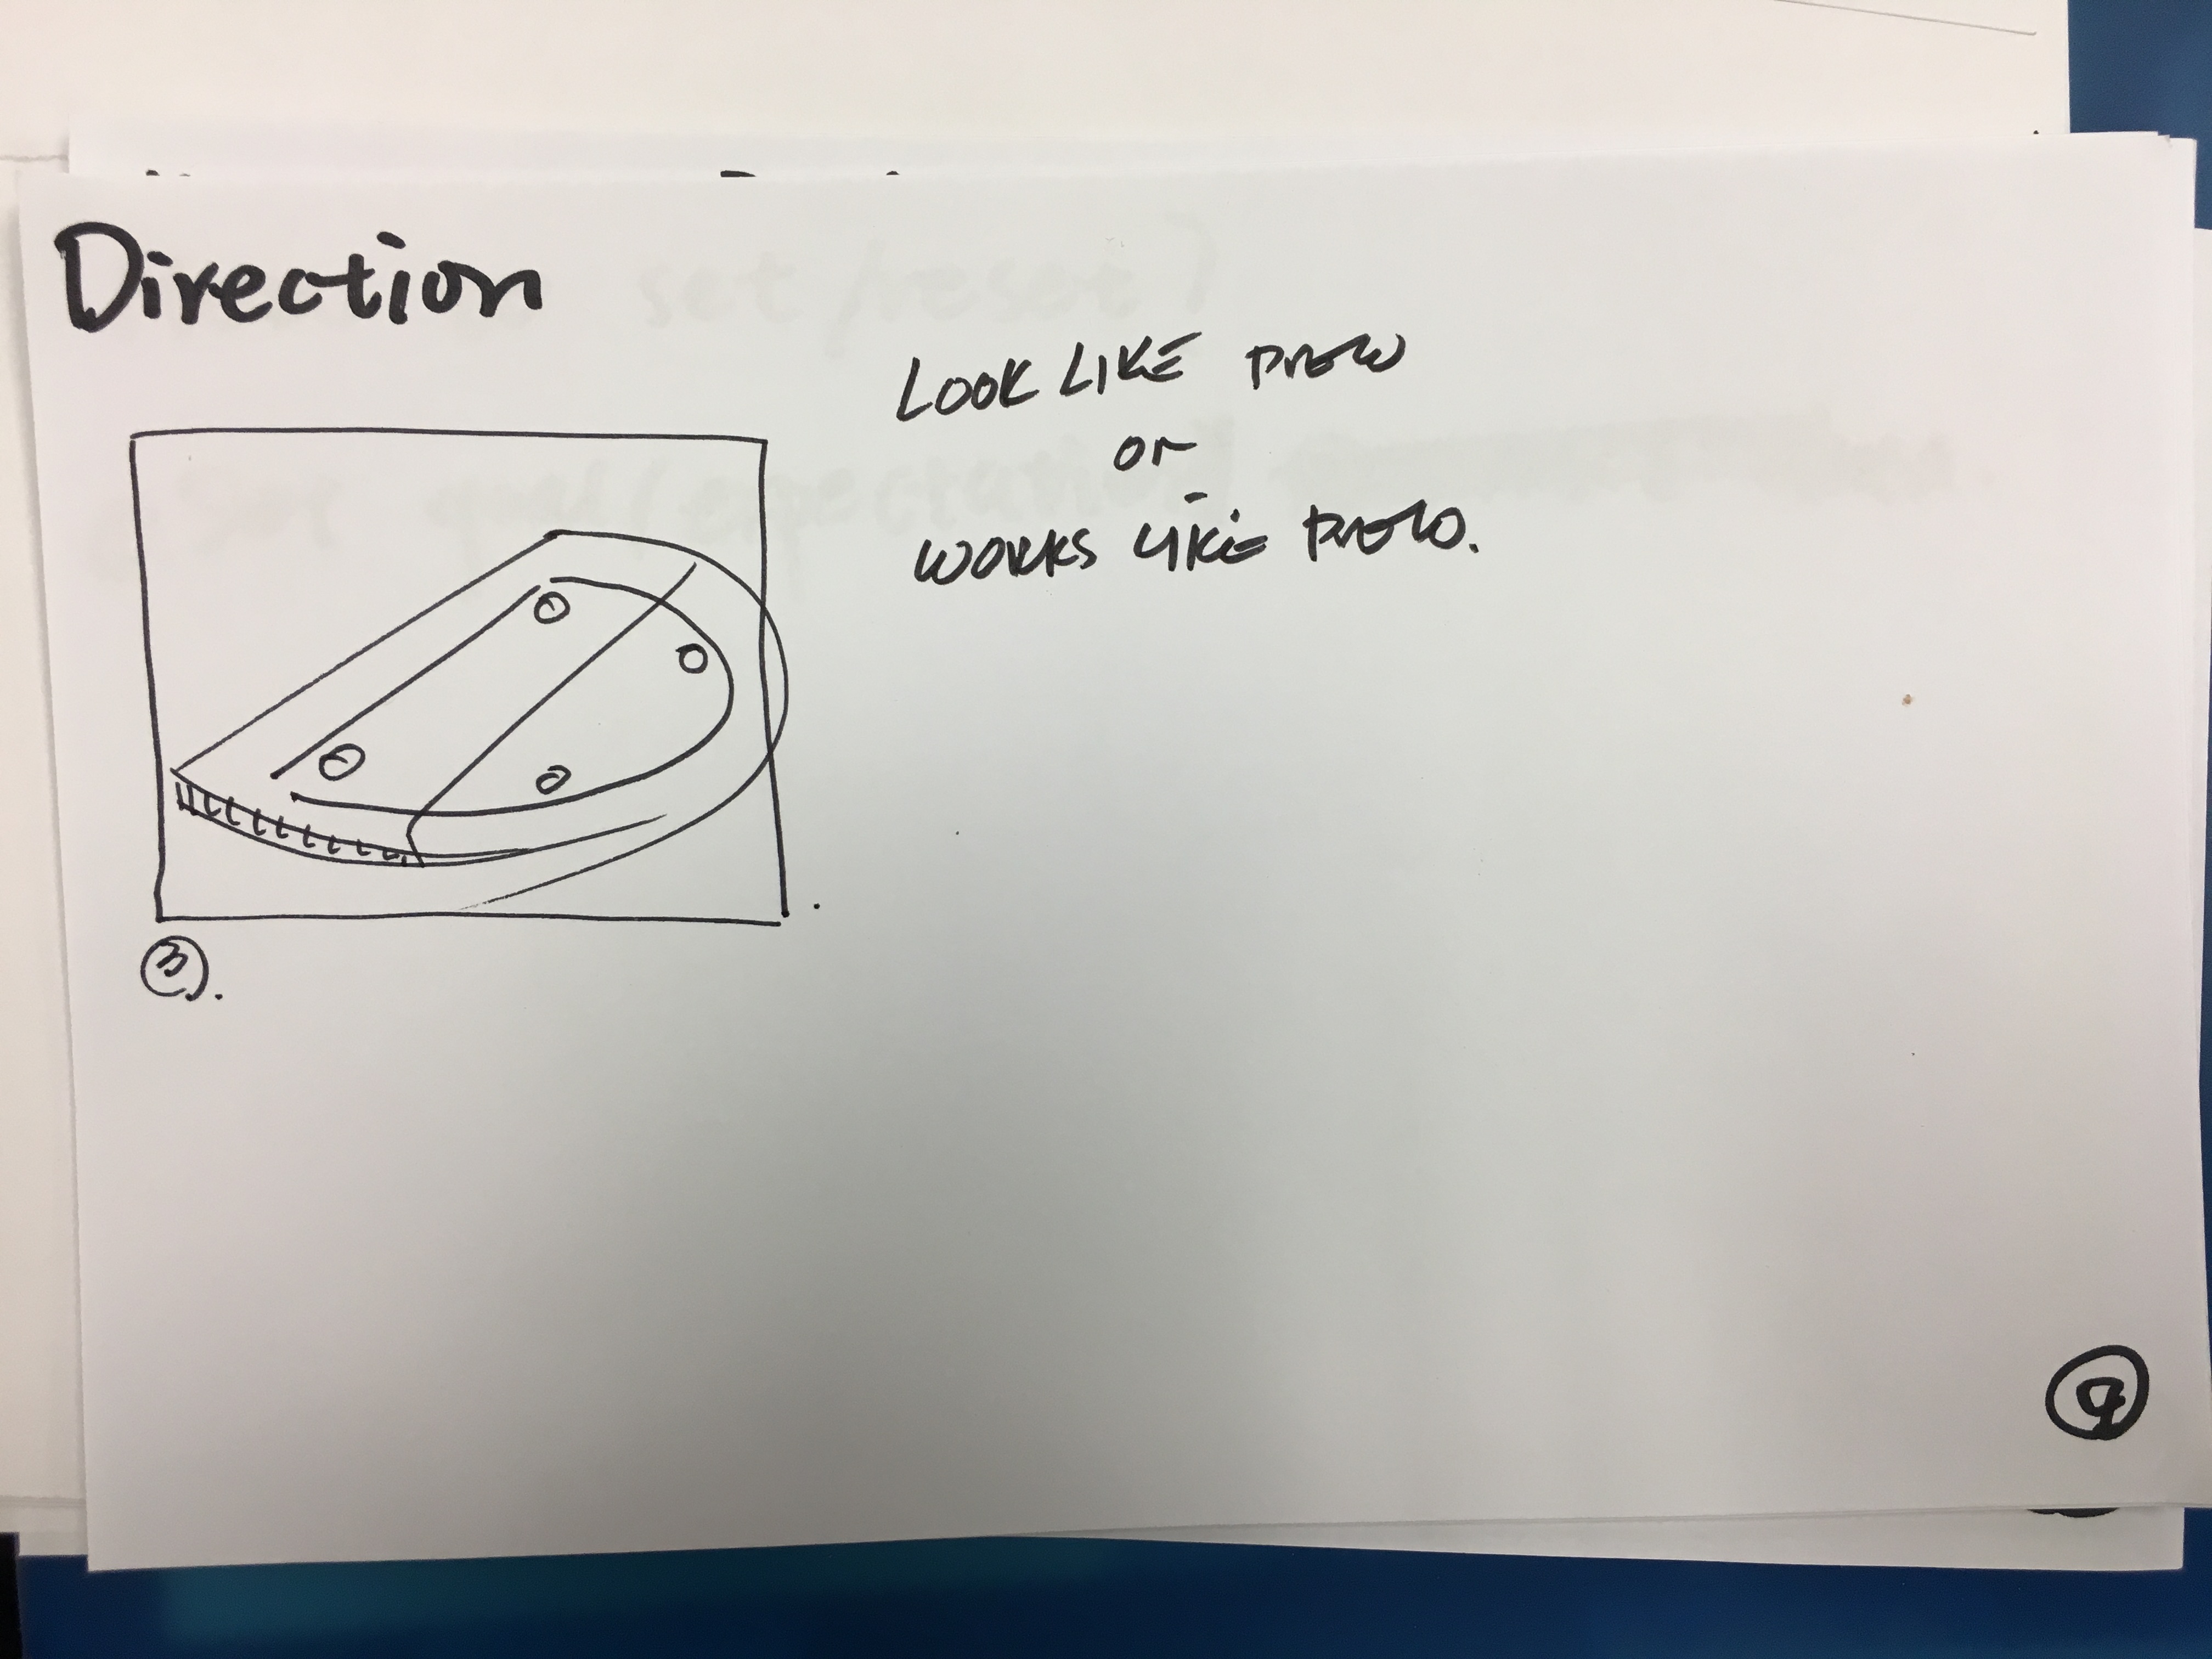 Direction
LOOK LIKE PROTO
or
WORKS LIKE PROTO.
4